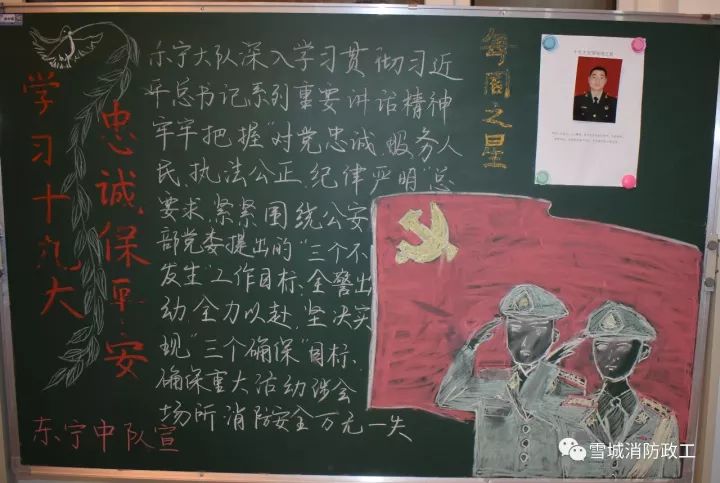 学习十九大
忠诚保平安
东宁大队深入学习贯彻习近
平总书记系列重要讲话精神
牢牢把握"对党忠诚、服务人
民、执法公正、纪律严明"总
要求,紧紧围绕公安
部党委提出的"三个不
发生"工作目标、全警出
动,全力以赴,坚决实
现"三个确保"目标、
确保重大活动涉会
场所消防安全万无一失
东宁中队宣
每周之星
雪城消防政工